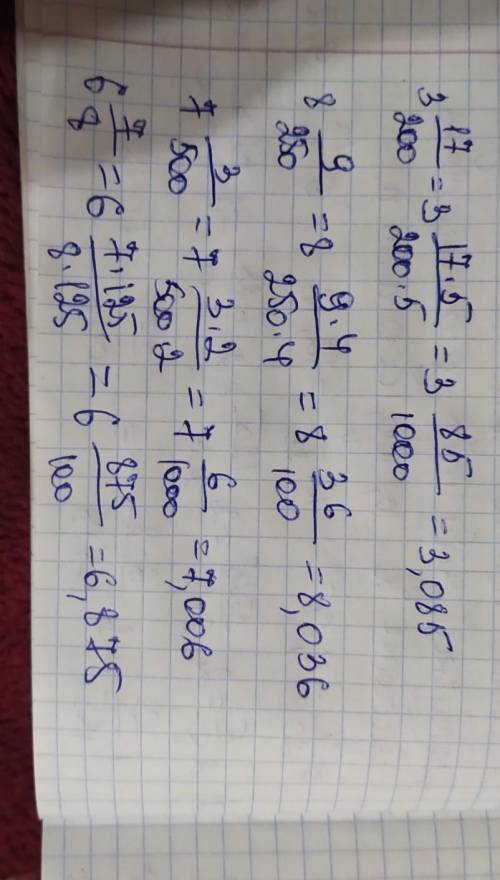 3 17/200 = 3 17·5/200·5 = 3 85/1000 = 3,085
8 9/250 = 8 9·4/250·4 = 8 36/100 = 8,036
7 3/500 = 7 3·2/500·2 = 7 6/1000 = 7,006
6 7/8 = 6 7·125/8·125 = 6 875/100 = 6,875